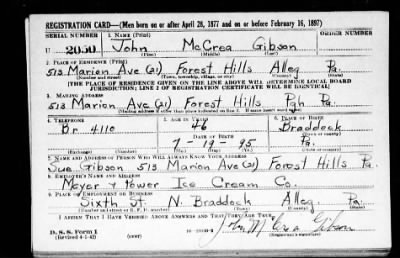 REGISTRATION CARD—(Men born on or after April 28, 1877 and on or before February 16, 1897)
SERIAL NUMBER 1. NAME (Print) ORDER NUMBER
U 2050 John McCrea Gibson
(First) (Middle) (Last)
2. PLACE OF RESIDENCE (Print)
513 Marion Ave (21) Forest Hills Alleg Pa.
(Number and street) (Town, township, village, or city) (County) (State)
[THE PLACE OF RESIDENCE GIVEN ON THE LINE ABOVE WILL DETERMINE LOCAL BOARD
JURISDICTION; LINE 2 OF REGISTRATION CERTIFICATE WILL BE IDENTICAL]
3. MAILING ADDRESS
513 Marion Ave (21) Forest Hills Pgh Pa.
4. TELEPHONE 5. AGE IN YEARS 6. PLACE OF BIRTH
46 Braddock
Br 4110 DATE OF BIRTH
7-19-95 Pa.
(Exchange) (Number) (Mo.) (Day) (Yr.) (State or country)
7. NAME AND ADDRESS OF PERSON WHO WILL ALWAYS KNOW YOUR ADDRESS
Sue Gibson 513 Marion Ave (21) Forest Hills Pa.
8. EMPLOYER'S NAME AND ADDRESS
Meyer + Power Ice Cream Co.
9. PLACE OF EMPLOYMENT OR BUSINESS
Sixth St. N. Braddock Alleg. Pa.
(Number and street or R. F. D. number) (Town) (County) (State)
I AFFIRM THAT I HAVE VERIFIED ABOVE ANSWERS AND THAT THEY ARE TRUE.
D. S. S. Form 1
(Revised 4-1-42) (over) John McCrea Gibson
(Registrant's signature)